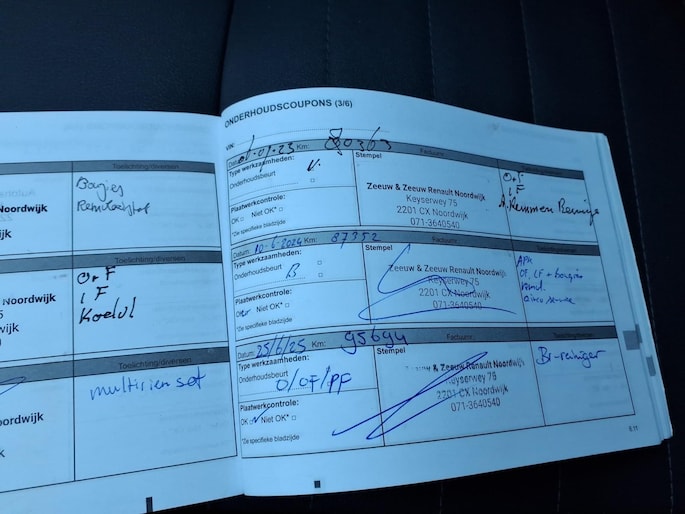 Toelichting/diversen
Bougies
Remvloeistof
Noordwijk
Toelichting/diversen
O+F
IF
Koelvl
Noordwijk
Toelichting/diversen
multiriem set
ordwijk
ONDERHOUDSCOUPONS (3/6)
VIN:
Datum: Km: 80363 Factuurnr.:
Type werkzaamheden:
Onderhoudsbeurt
Plaatwerkcontrole:
OK Niet OK*
*Zie specifieke bladzijde
Stempel
Zeeuw & Zeeuw Renault Noordwijk
Keyserweg 75
2201 CX Noordwijk
071-3640540
O+F
IF
Remmen
Datum: 10-6-2024 Km: 87352 Factuurnr.:
Type werkzaamheden:
Onderhoudsbeurt B
Plaatwerkcontrole:
OK Niet OK*
*Zie specifieke bladzijde
Stempel
Zeeuw & Zeeuw Renault Noordwijk
Keyserweg 75
2201 CX Noordwijk
071-3640540
APK
OF, IF + bougies
airco service
Datum: 25/6/25 Km: 95694 Factuurnr.:
Type werkzaamheden:
Onderhoudsbeurt O/OF/PF
Plaatwerkcontrole:
OK Niet OK*
*Zie specifieke bladzijde
Stempel
& Zeeuw Renault Noordwijk
Keyserweg 75
2201 CX Noordwijk
071-3640540
Br-reiniger
6.11